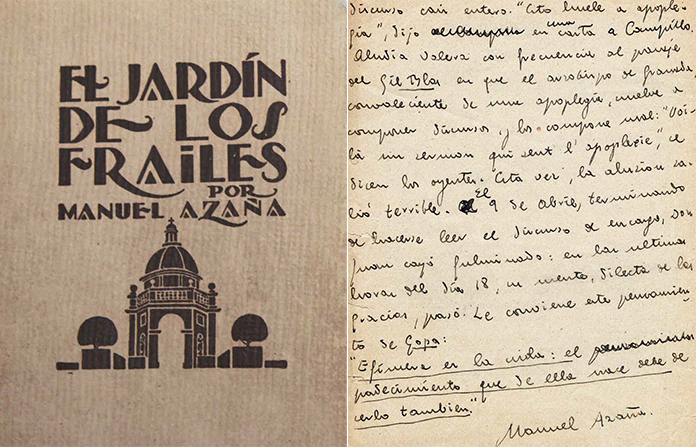 EL JARDÍN
DE LOS
FRAILES
POR
MANUEL AZAÑA
discurso casi entero. "Esto huele a apople-
gía", dijo en una carta a Campillo.
Aludía Valera con frecuencia al pasaje
del Gil Blas en que el arzobispo de Granada
convaleciente de una apoplegía, vuelve a
componer discursos, y los compone mal: "Voi-
là un sermon qui sent l'apoplexie", se
dicen los oyentes. Esta vez, la alusión sa-
lió terrible. El 9 de Abril, terminando
de hacerse leer el discurso de encargo, don
Juan cayó fulminado: en las ultimas
horas del día 18, su mente, dilecta de las
gracias, pasó. Le conviene este pensamien-
to de Gopa:
"Efímera es la vida: el
padecimiento que de ella nace debe de
serlo tambien."
Manuel Azaña.